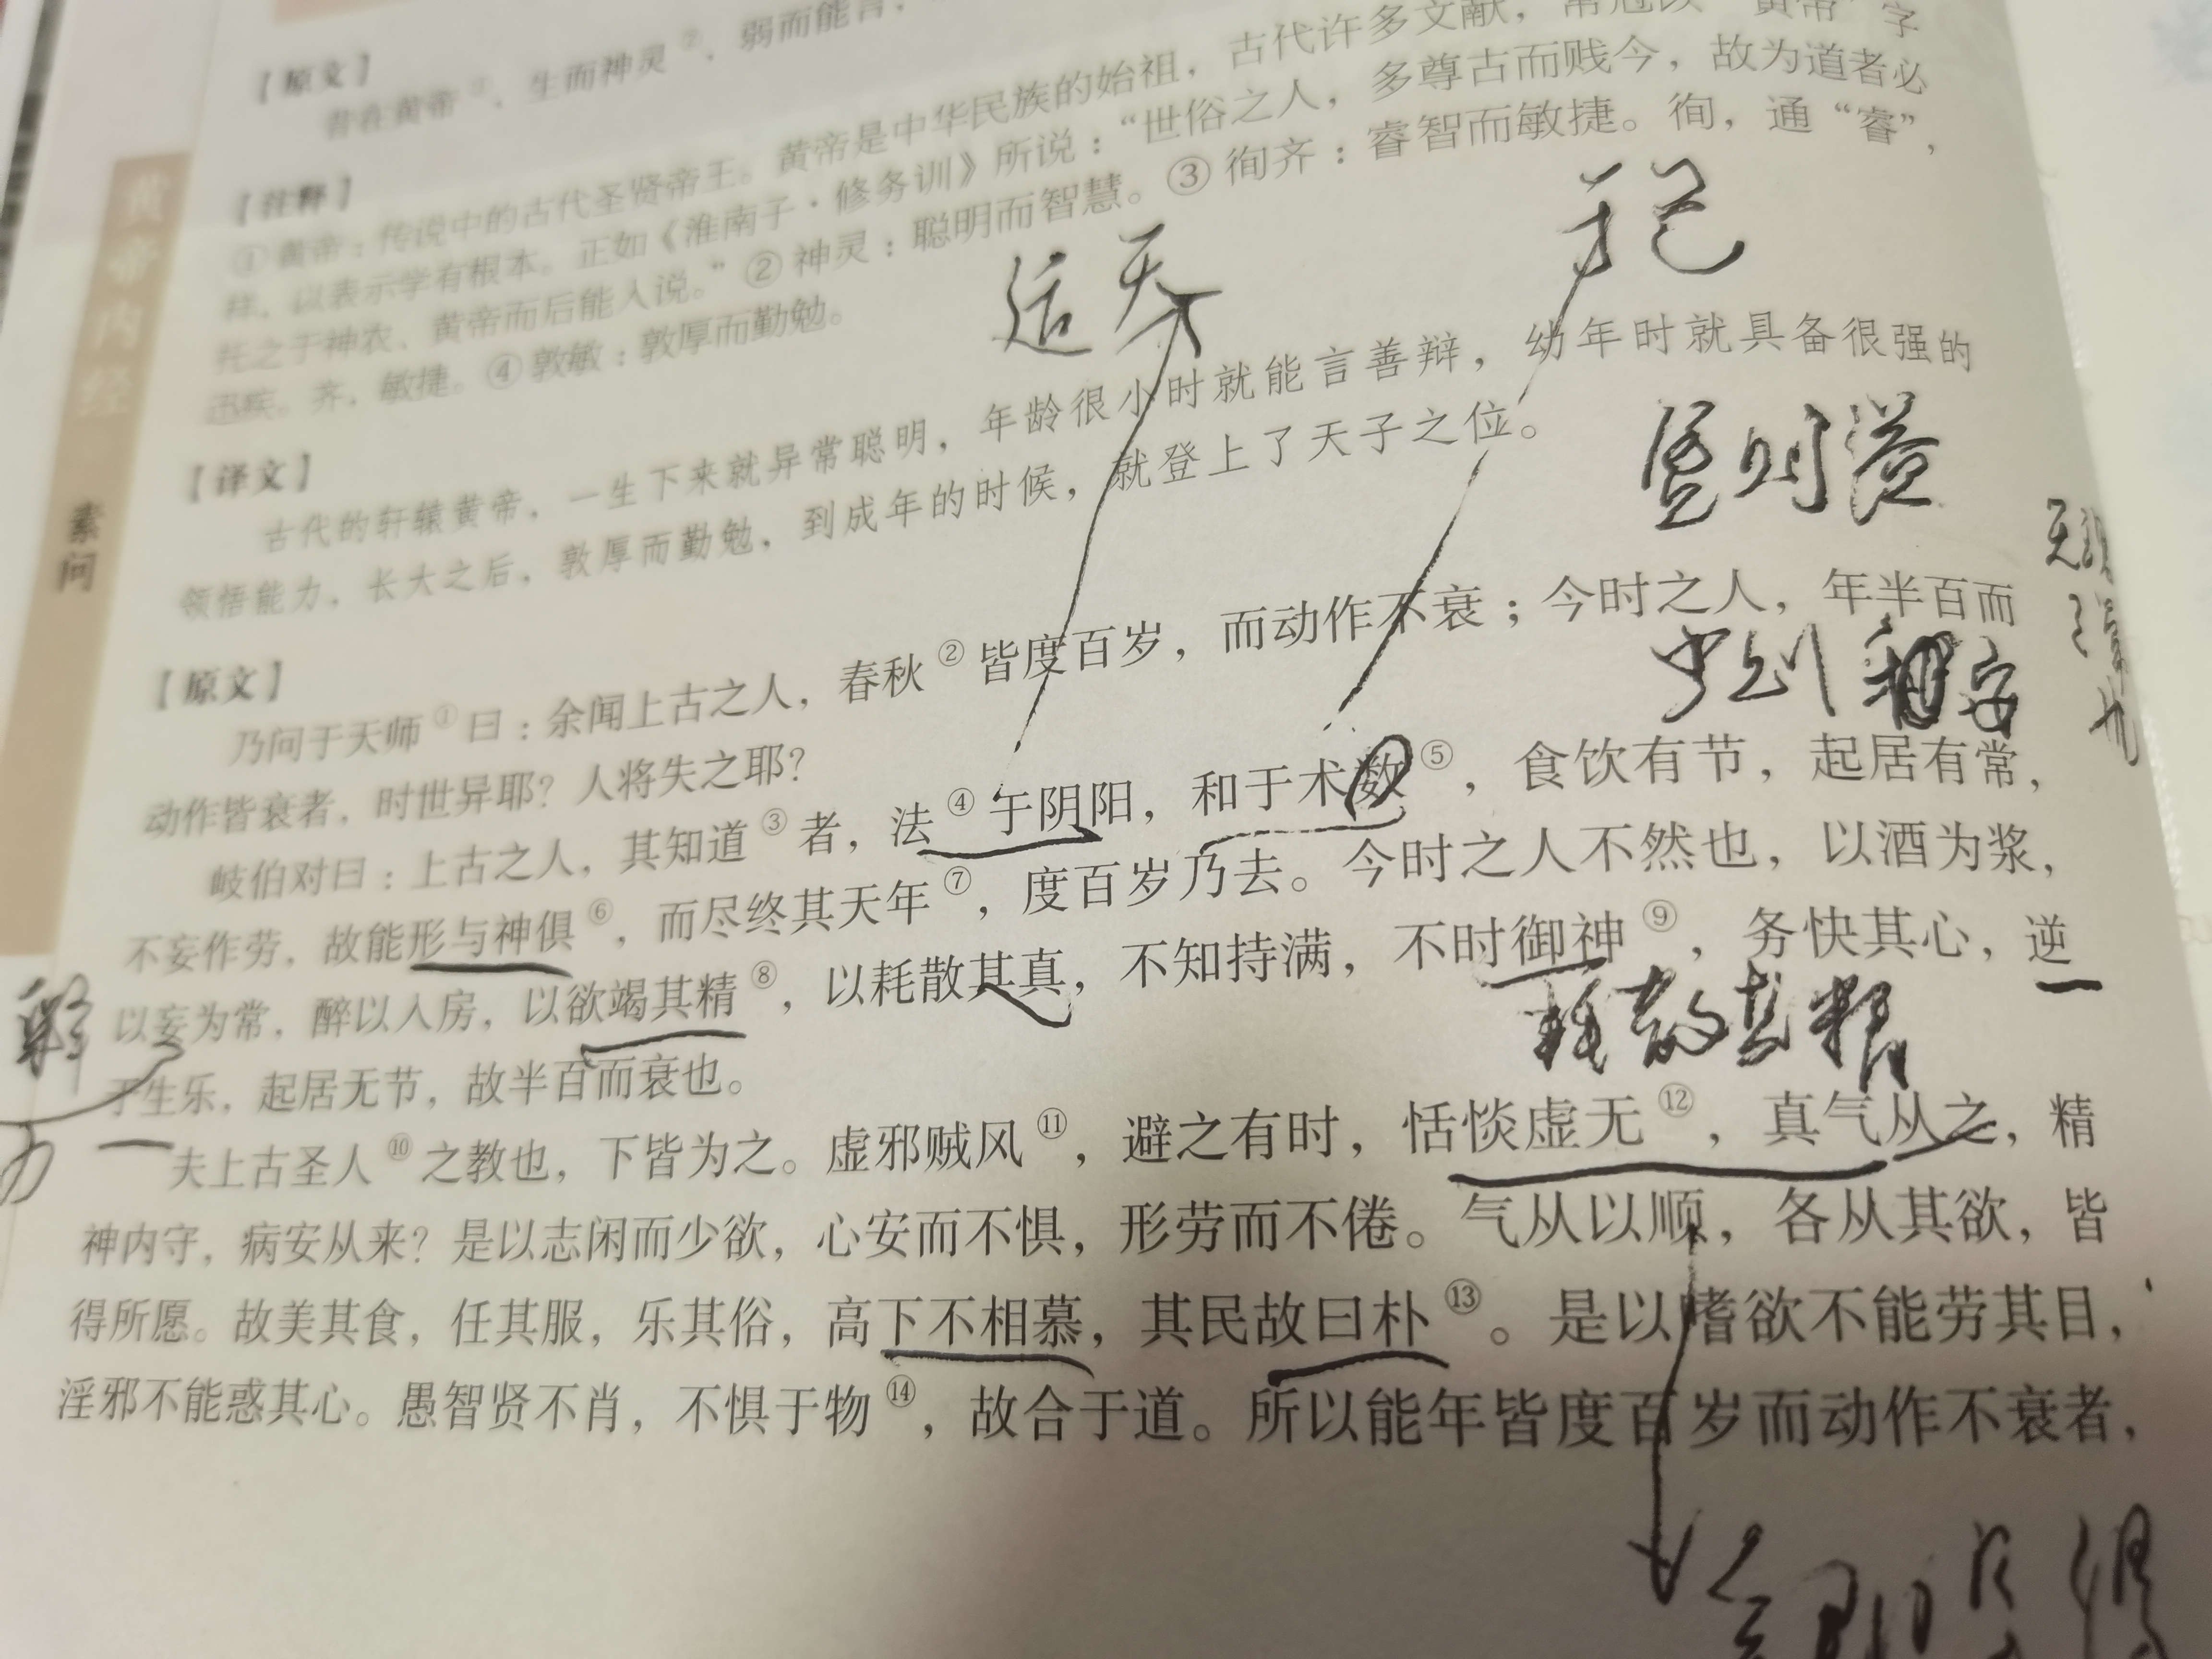 黄帝内经
素问
【原文】
昔在黄帝①，生而神灵②，弱而能言，
【注释】
①黄帝：传说中的古代圣贤帝王。黄帝是中华民族的始祖，古代许多文献，常冠以“黄帝”字
样，以表示学有根本。正如《淮南子·修务训》所说：“世俗之人，多尊古而贱今，故为道者必
托之于神农、黄帝而后能入说。”②神灵：聪明而智慧。③徇齐：睿智而敏捷。徇，通“睿”，
迅疾。齐，敏捷。④敦敏：敦厚而勤勉。
【译文】
古代的轩辕黄帝，一生下来就异常聪明，年龄很小时就能言善辩，幼年时就具备很强的
领悟能力，长大之后，敦厚而勤勉，到成年的时候，就登上了天子之位。
【原文】
乃问于天师①曰：余闻上古之人，春秋②皆度百岁，而动作不衰；今时之人，年半百而
动作皆衰者，时世异耶？人将失之耶？
岐伯对曰：上古之人，其知道③者，法④于阴阳，和于术数⑤，食饮有节，起居有常，
不妄作劳，故能形与神俱⑥，而尽终其天年⑦，度百岁乃去。今时之人不然也，以酒为浆，
以妄为常，醉以入房，以欲竭其精⑧，以耗散其真，不知持满，不时御神⑨，务快其心，逆
于生乐，起居无节，故半百而衰也。
耗散其精
夫上古圣人⑩之教也，下皆为之。虚邪贼风⑪，避之有时，恬惔虚无⑫，真气从之，精
神内守，病安从来？是以志闲而少欲，心安而不惧，形劳而不倦。气从以顺，各从其欲，皆
得所愿。故美其食，任其服，乐其俗，高下不相慕，其民故曰朴⑬。是以嗜欲不能劳其目，
淫邪不能惑其心。愚智贤不肖，不惧于物⑭，故合于道。所以能年皆度百岁而动作不衰者，